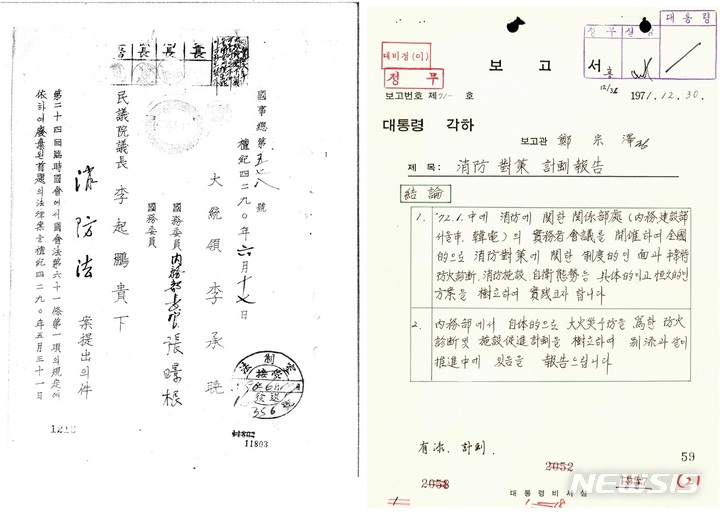 國事總第五六八號
檀紀四二九〇年六月十七日
大統領 李承晩
國務委員 內務部長官 張暻根
國務委員
民議院議長 李起鵬 貴下
消防法 案提出의件
第二十四回臨時國會에서國會法第六十一條第一項의規定에
依하여廢棄된首題의法律案을檀紀四二九〇年五月三十一日
1218
11803
法制
接受
356
대통령
대비정(이)
정무
보고서
보고번호 제 71- 호
1971. 12. 30.
12/26
대통령 각하
보고관 鄭宗澤
제목: 消防 對策 計劃報告
結論
1. '72.1. 中에 消防에 関한 関係部處(內務,建設部
서울市, 韓電)의 實務者會議를 開催하여 全國
的으로 消防對策에 関한 制度的인 面과
防火診斷, 消防施設, 自衛態勢을 具体的이고 恒久的인
方案을 樹立하여 實践코자 합니다
2. 內務部에서 自体的으로 大火災予防을 爲한 防火
診斷및 施設促進計劃을 樹立하여 別添과 같이
推進中에 있음을 報告드립니다.
有添. 計劃.
59
2052
2058
대통령비서실
NEWSIS